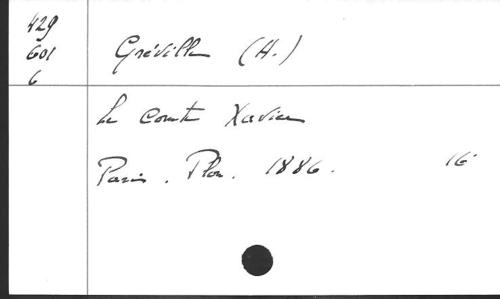 429
601
6
Gréville (H.)
Le comte Xavier
Paris. Plon. 1886. 16°